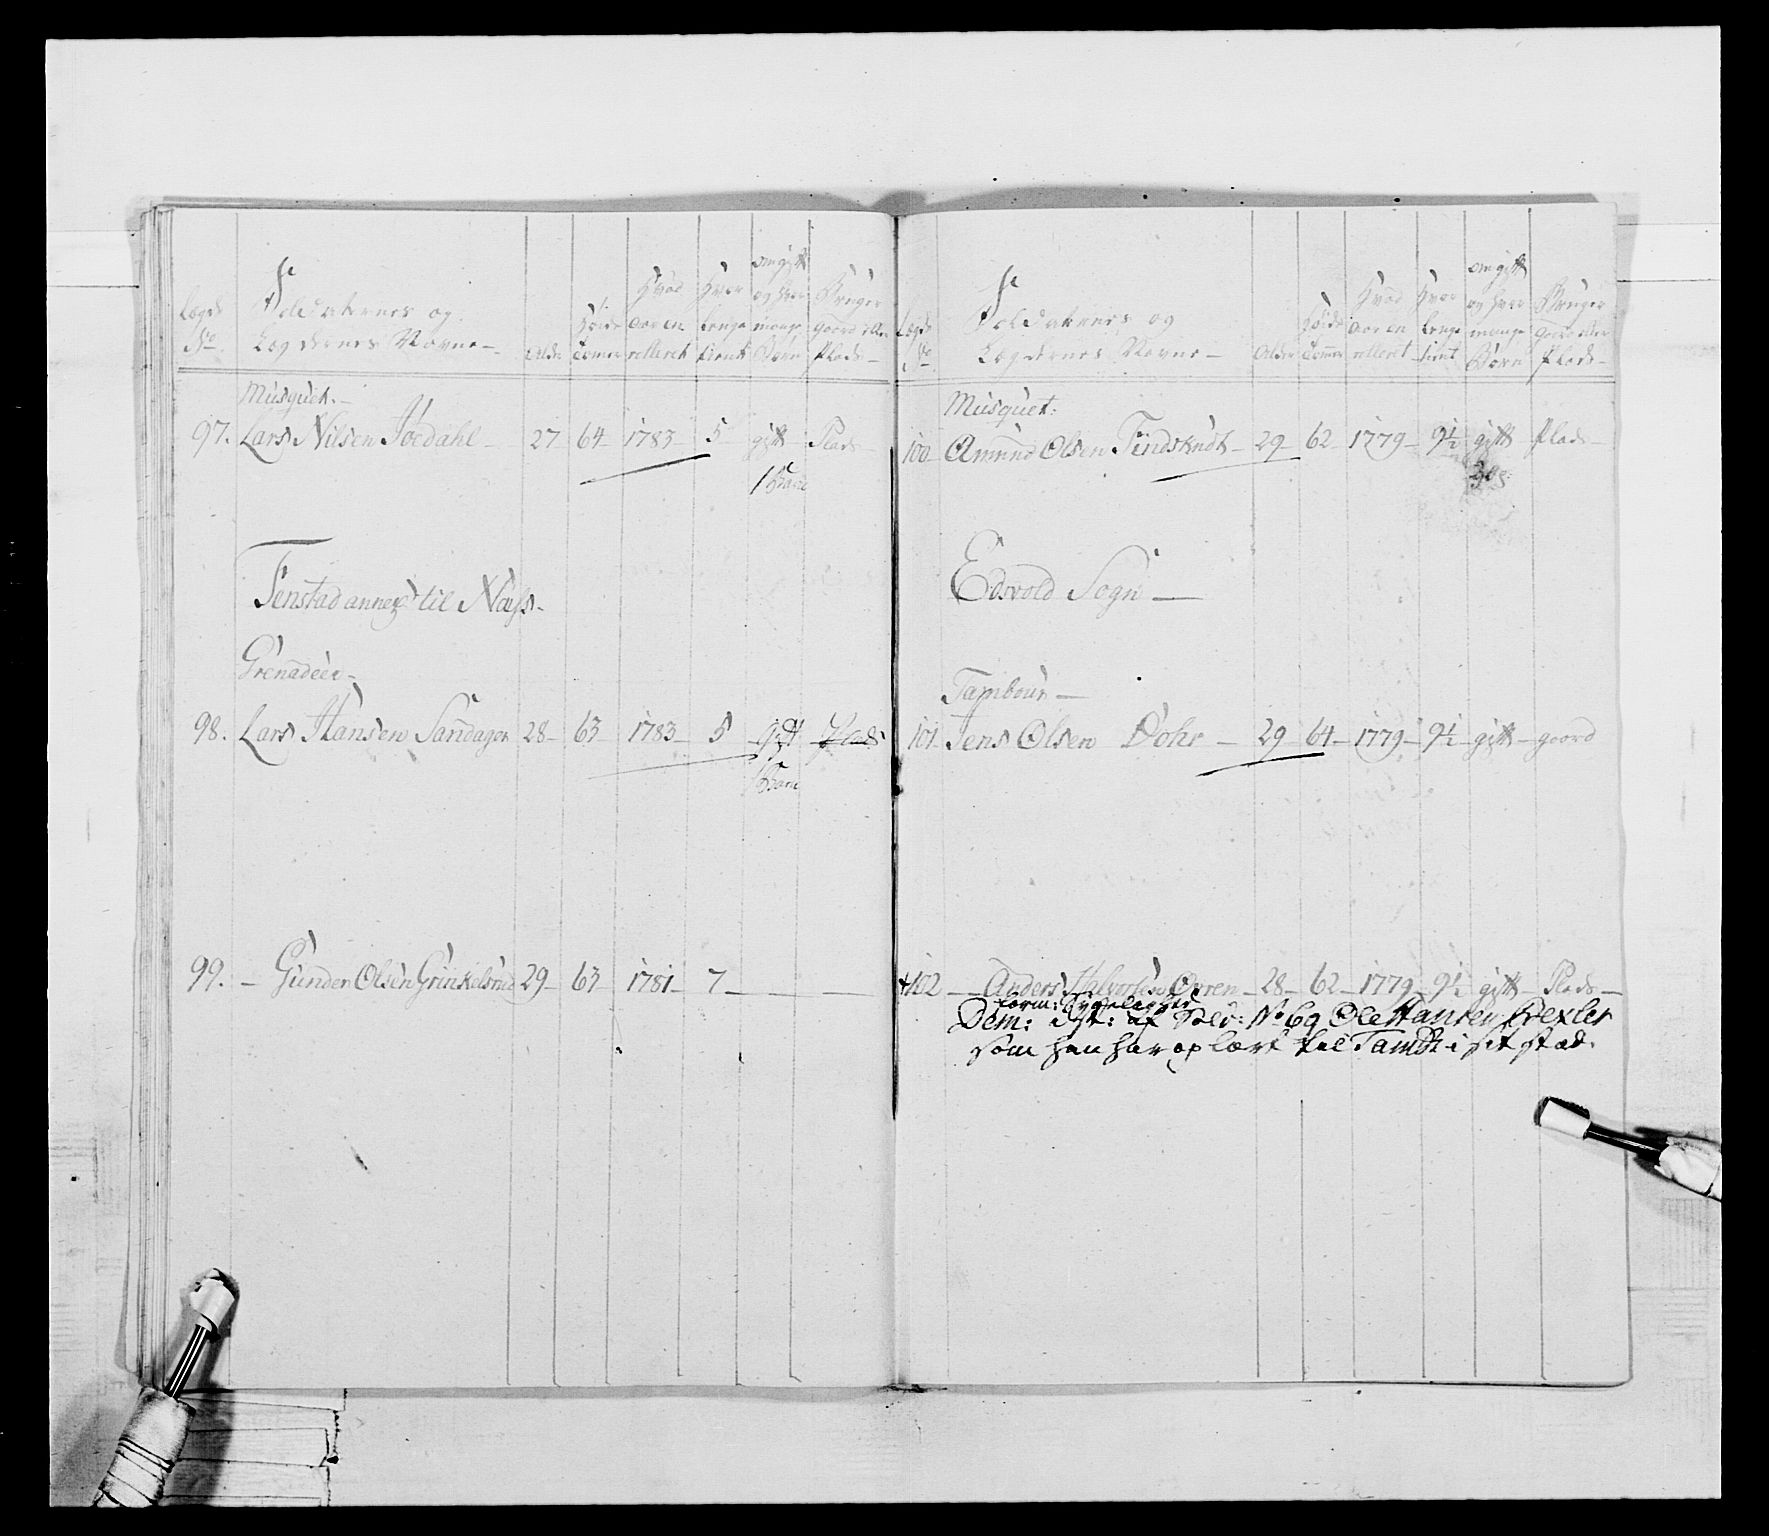 Lægs No | Soldaternes og Lægdernes Navne – | Alder | Høide Tomer | Hvad Aar en rolleret | Hvor lenge tient | om gift og hvor mange Børn | Bruger gaard eller Plads –
Musquet. –
97. Lars Nilsen – 27 64 – 1783 – 5 gift Plads –
1 Barn
Fenstad annex til Næss –
Grenadeer –
98. Lars Hansen Sandager 28 – 63 1783 – 5 gift Plads
1 Barn
99. – Gunder Olsen 29 – 63 1781 – 7 –
Lægs No | Soldaternes og Lægdernes Navne – | Alder | Høide Tommer | Hvad Aar en rolleret | Hvor lenge tient | om gift og hvor mange Børn | Bruger gaard eller Plads –
Musquet:
100 – Amund Olsen – 29 – 62 – 1779 – 9½ gift Plads –
Edsvold Sogn –
Tambour –
101 Jens Olsen Dohr – 29 64 – 1779 – 9½ – gift – goord
+102 – Anders Halvorsen – 28 – 62 – 1779 – 9½ gift – Plads –
form: Sygelighed
Dem: af Sold: No 69 Ole Hansen
som han har oplært til Tambr i sit stæd.